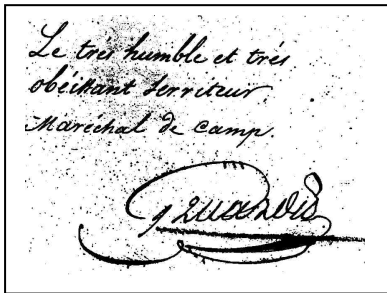 Le trés humble et trés
obéissant Serviteur
Maréchal de Camp.